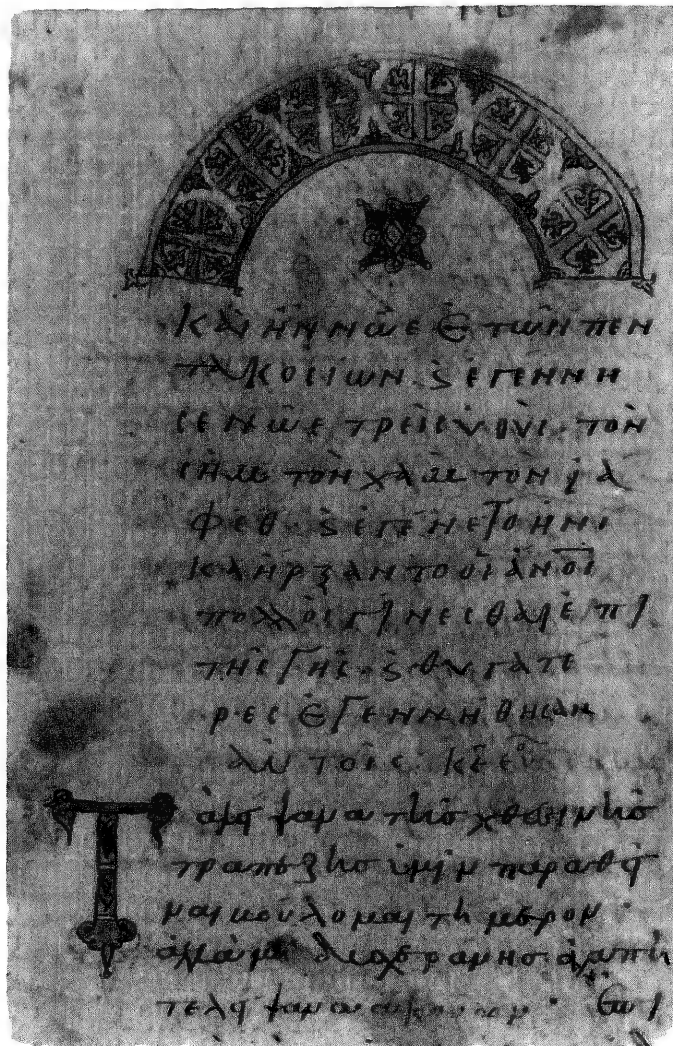 Καὶ ἦν Νῶε ἐτῶν πεν
τακοσίων· ϗ ἐγέννη
σε Νῶε τρεῖς υἱούς· τὸν
Σὴμ τὸν Χὰμ τὸν Ἰά
φεθ· ϗ ἐγένετο ἡνί
κα ἤρξαντο οἱ ἄν̅ο̅ι̅
πολλοὶ γίνεσθαι ἐπὶ
τῆς γῆς· ϗ θυγατέ
ρες ἐγεννήθησαν
αὐτοῖς·
Τὰ λείψανα τῆς χθεσινῆς
τραπέζης ὑμῖν παραθεῖ
ναι βούλομαι τήμερον·
ἀλλὰ μὴ δυσχεράνῃς ἀγαπη
τὲ λείψανα ἀκούων·